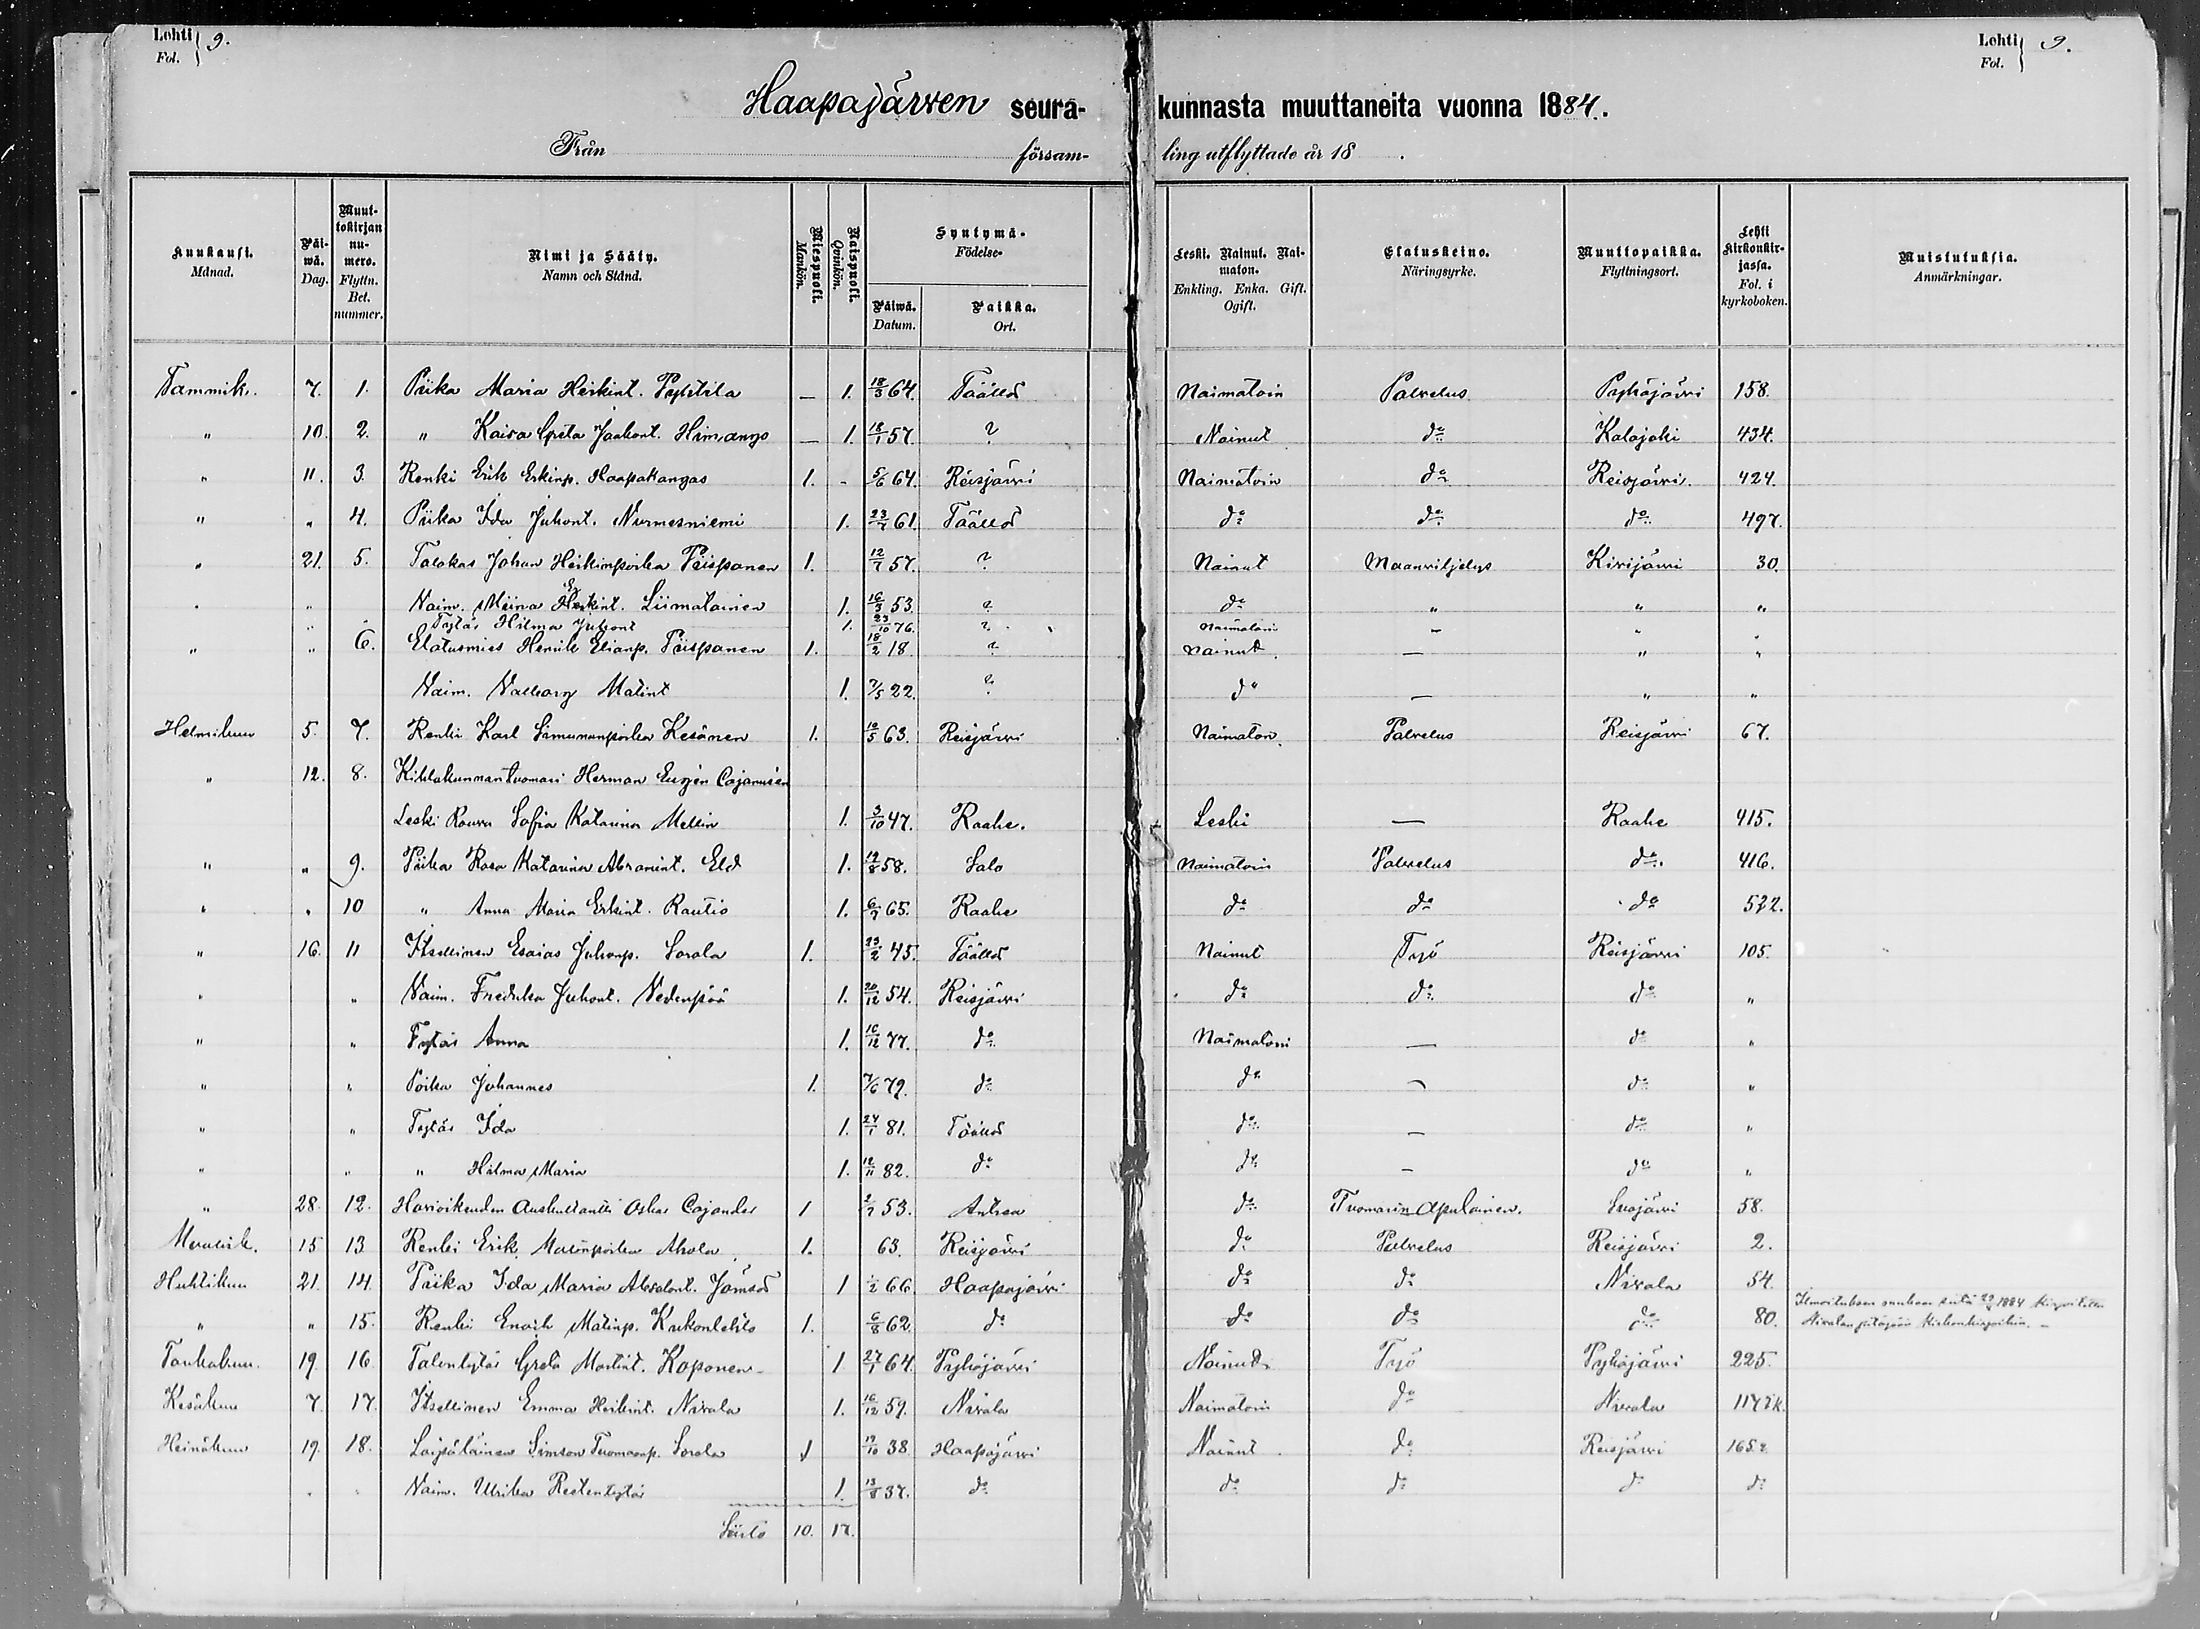 Lehti 9.
Fol.
Lehti 9.
Fol.
Haapajärven seura- kunnasta muuttaneita vuonna 1884.
Från försam- ling utflyttade år 18 .
Kuukausi. Månad. Päi-wä. Dag. Muut-tokirjan nu-mero. Flyttn. Bet. nummer. Nimi ja Sääty. Namn och Stånd. Miespuoli. Mankön. Naispuoli. Qvinkön. Syntymä- Födelse- Päiwä. Datum. Paikka. Ort. Leski. Nainut. Nai-maton. Enkling. Enka. Gift. Ogift. Elatuskeino. Näringsyrke. Muuttopaikka. Flyttningsort. Lehti kirkonkir-jassa. Fol. i kyrkoboken. Muistutuksia. Anmärkningar.
Tammik. 7. 1. Piika Maria Heikint. Pylhtilä — 1. 18/3 64. Täällä Naimatoin Palvelus Pyhäjärvi 158.
" 10. 2. " Kaisa Greta Jaakont. Himango — 1. 18/1 57. ? Nainut do Kalajoki 434.
" 11. 3. Renki Erik Erkinp. Haapakangas 1. - 5/6 64. Reisjärvi Naimatoin do Reisjärvi 424.
" " 4. Piika Ida Juhont. Nurmesniemi 1. 23/7 61. Täällä do do do 497.
" 21. 5. Talokas Johan Heikinpoika Piispanen 1. 12/7 57. ? Nainut Maanviljelys Kivijärvi 30.
" " Vaim. Miina Erkint. Liimatainen 1. 16/3 53. ? do " " "
" " Tytär Hilma Juhont 1. 23/10 76. ? Naimatoin — " "
" " 6. Elatusmies Henrik Elianp. Piispanen 1. 18/2 18. ? Nainut — " "
Vaim. Valborg Matint 1. 7/5 22. ? do — " "
Helmikuu 5. 7. Renki Karl Simunanpoika Kesänen 1. 12/5 63. Reisjärvi Naimaton. Palvelus Reisjärvi 67.
" 12. 8. Kihlakunnantuomari Herman Eugén Cajanusén
Leski Rouva Sofia Katarina Mellin 1. 3/10 47. Raahe. Leski — Raahe 415.
" " 9. Piika Rosa Katarina Abramint. Eld 1. 19/8 58. Salo Naimatoin Palvelus do 416.
" " 10 " Anna Maria Erkint. Rautio 1. 6/7 65. Raahe do do do 522.
" 16. 11 Itsellinen Esaias Juhonp. Sorola 1. 23/2 45. Täällä Nainut Työ Reisjärvi 105.
" " Vaim. Fredrika Juhont. Vedenpää 1. 20/12 54. Reisjärvi do do do "
" " Tytär Anna 1. 16/12 77. do Naimatoin — do "
" " Poika Johannes 1. 7/6 79. do do — do "
" " Tytär Ida 1. 24/1 81. Täällä do — do "
" " " Hilma Maria 1. 12/11 82. do do — do "
" 28. 12. Hovioikeuden Auskultantti Oskar Cajander 1 53. Antrea do Tuomarin apulainen. 58.
Maalisk. 15 13 Renki Erik Matinpoika Ahola 1. 63. Reisjärvi do Palvelus Reisjärvi 2.
Huhtikuu 21. 14. Piika Ida Maria Absalont. Jämsä 1 66. Haapajärvi do do Nivala 54.
" " 15. Renki Enoch Matinp. Kukonlehto 1. 6/8 62. do do do do 80. Ilmoituksen mukaan 1884
Toukokuu. 19. 16. Talontytär Greta Martint. Koponen 1 27/1 64. Pyhäjärvi Nainut Työ Pyhäjärvi 225.
Kesäkuu 7. 17. Itsellinen Emma Heikint. Nivala 1. 16/12 59. Nivala Naimatoin do Nivala
Heinäkuu 19. 18. Loysäläinen Simson Tuomaanp. Sorola 1 19/10 38. Haapajärvi Nainut. do Reisjärvi 165.
" " Vaim. Ulrika Restentytär 1. 13/8 37. do do do do do
Siirto 10. 17.